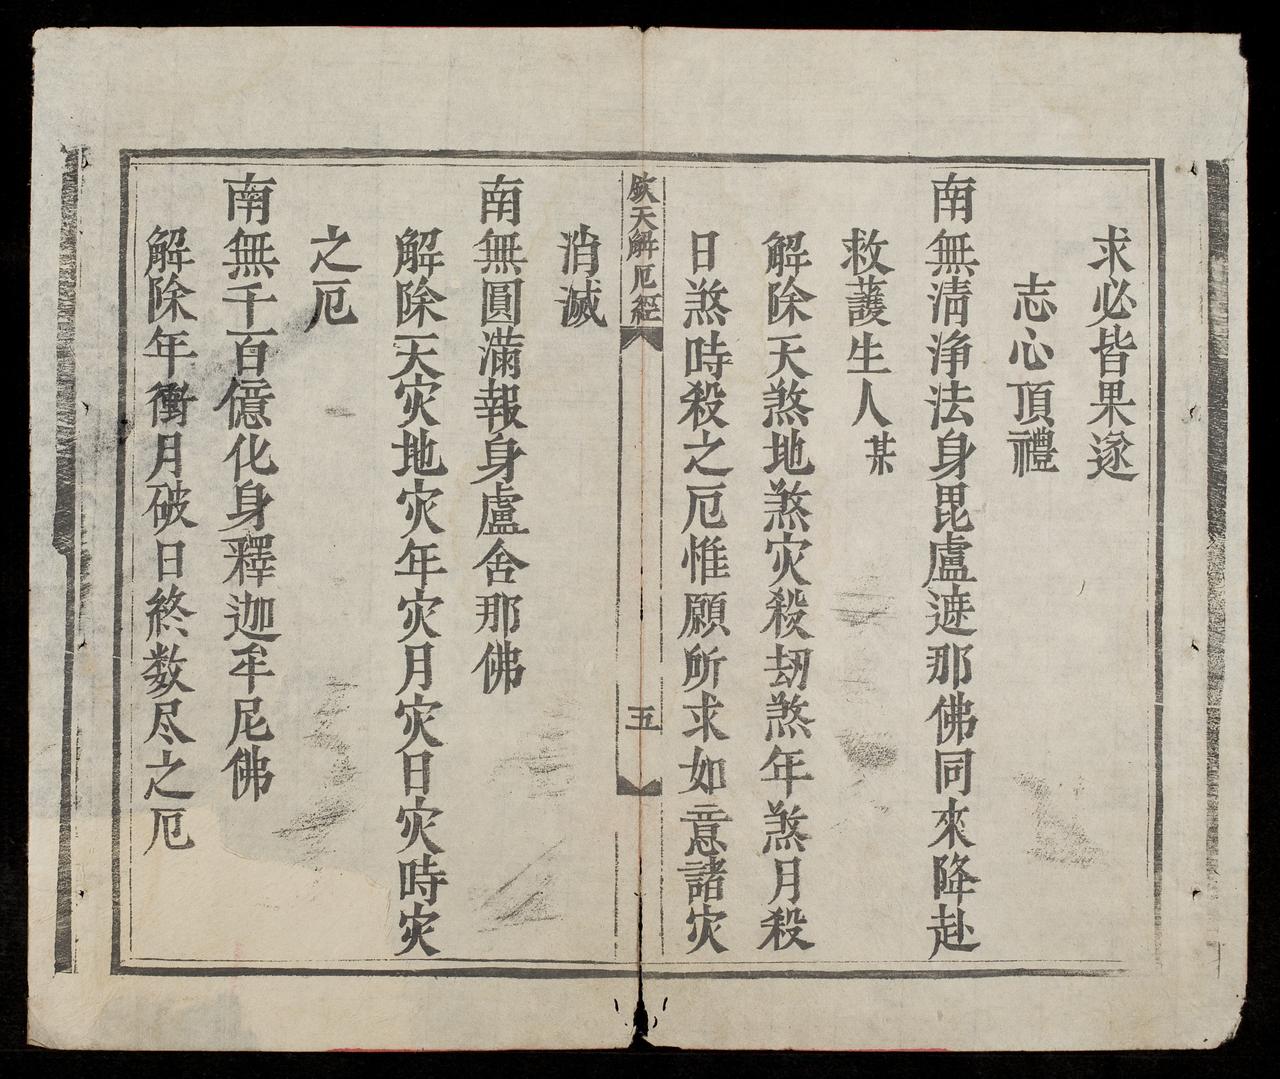 求必皆果遂
志心頂禮
南無清淨法身毘盧遮那佛同來降赴
救護生人某
解除天煞地煞灾殺刼煞年煞月殺
日煞時殺之厄惟願所求如意諸灾
欽天解厄經
五
消滅
南無圓滿報身盧舍那佛
解除天灾地灾年灾月灾日灾時灾
之厄
南無千百億化身釋迦牟尼佛
解除年衝月破日終数尽之厄